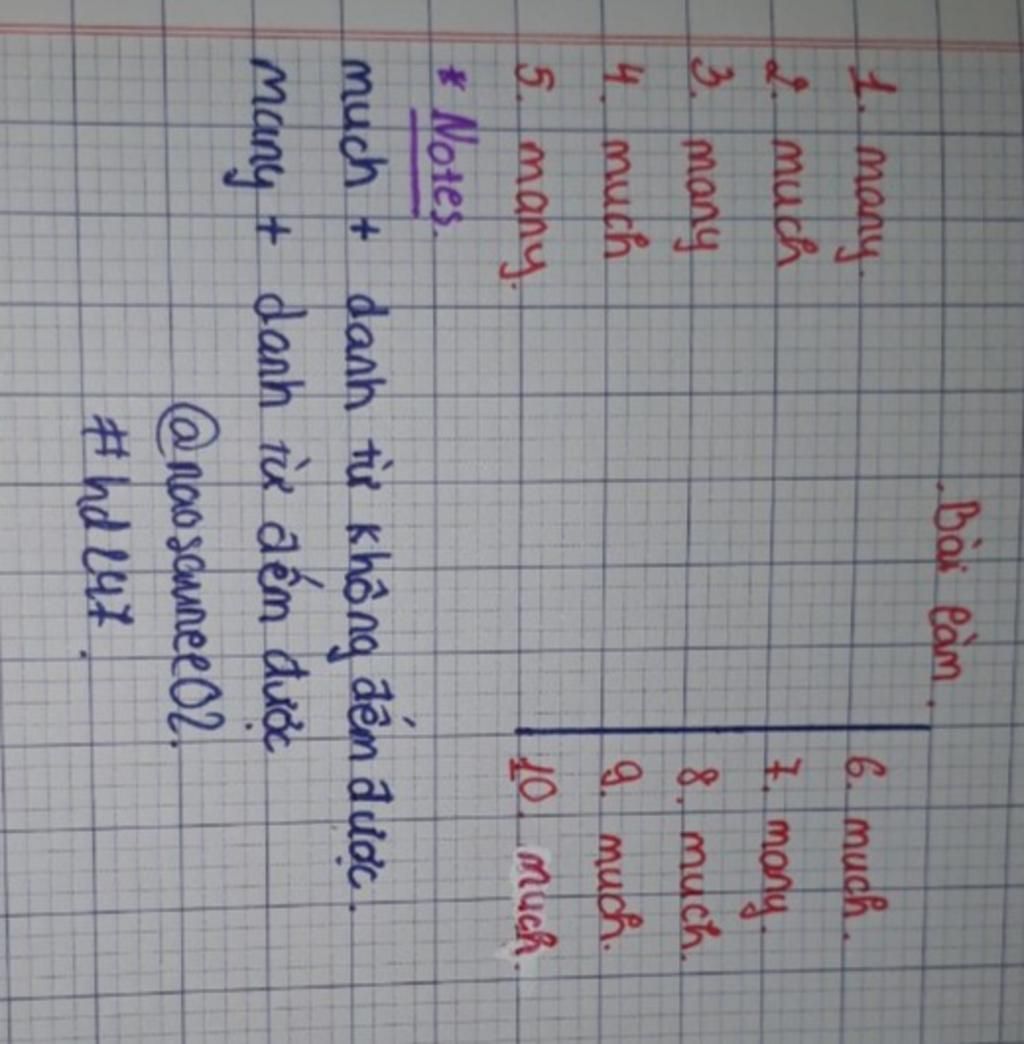 .Bài làm.
1. many.
2. much
3. many
4. much
5. many.
6. much.
7. many.
8. much.
9. much.
10. much.
* Notes.
much + danh từ không đếm được.
many + danh từ đếm được
@naosaunee02.
#hd247.